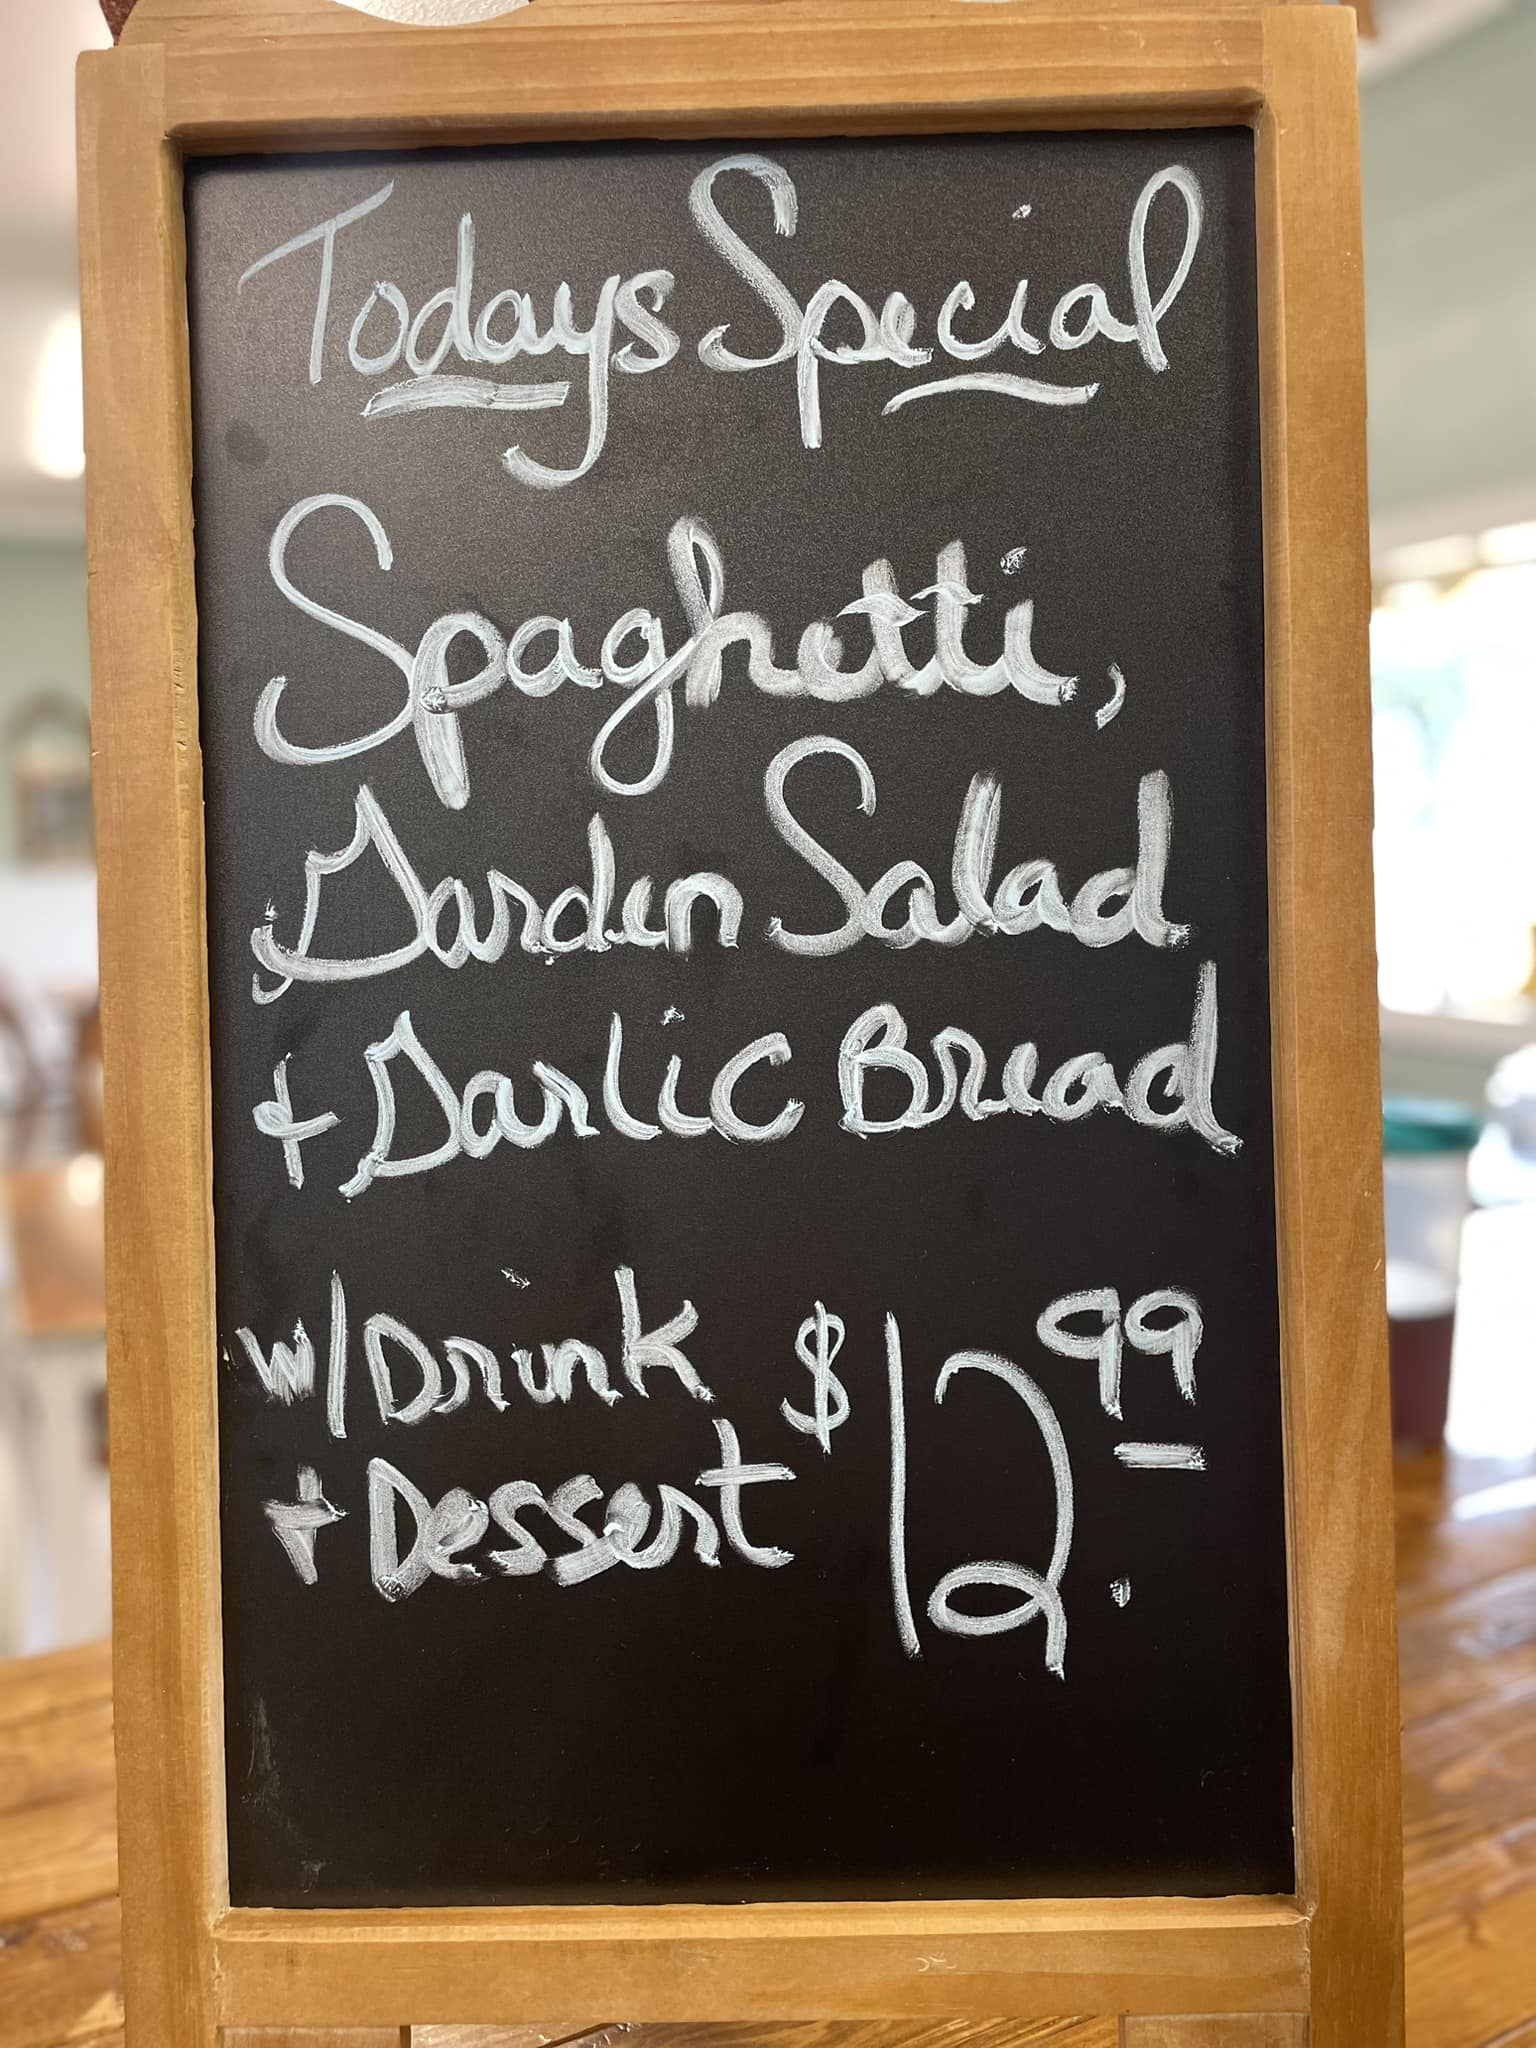 Todays Special
Spaghetti,
Garden Salad
+ Garlic Bread
w/Drink $12.99
+ Dessert